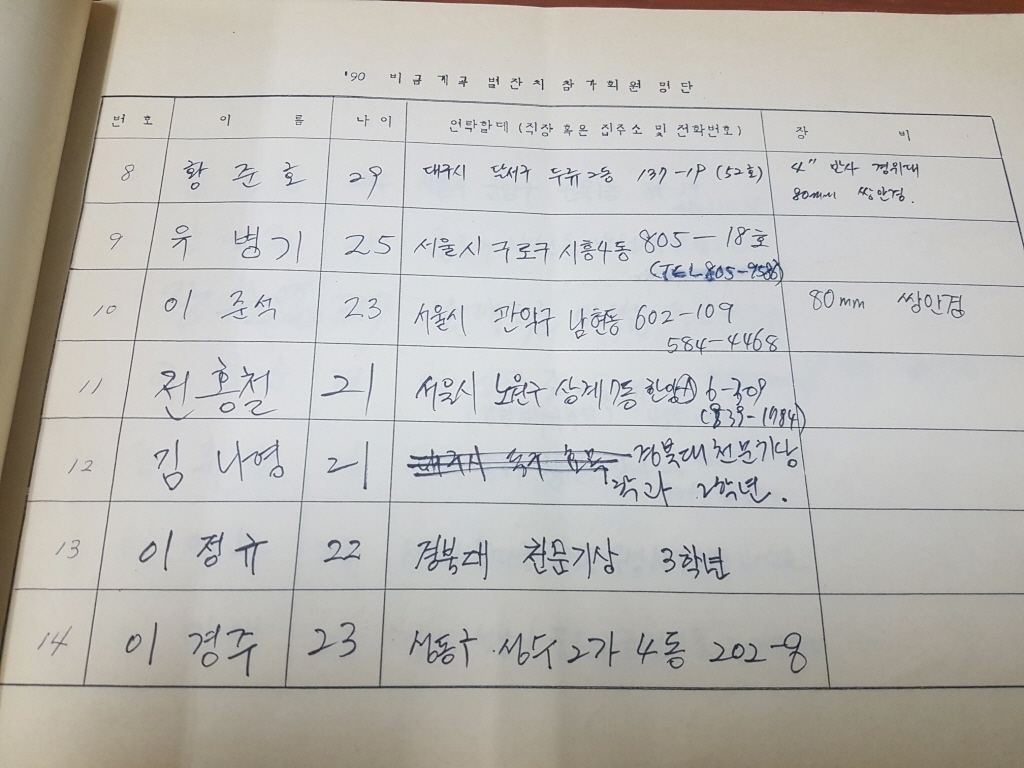 '90 비금계곡 별잔치 참가회원 명단
번 호 이 름 나 이 연락할데 (직장 혹은 집주소 및 전화번호) 장 비
8 황 준 호 29 대구시 달서구 두류2동 137-19 (52호) 4" 반사 경위대
80mm 쌍안경.
9 유 병기 25 서울시 구로구 시흥4동 805-18호
(TEL 805-9586)
10 이 준석 23 서울시 관악구 남현동 602-109 80mm 쌍안경
584-4468
11 전홍철 21 서울시 노원구 상계7동 한양 6-309
(839-1784)
12 김 나영 21 경북대 천문기상
학과 2학년.
13 이 정규 22 경북대 천문기상 3학년
14 이 경주 23 성동구 성수2가 4동 202-8